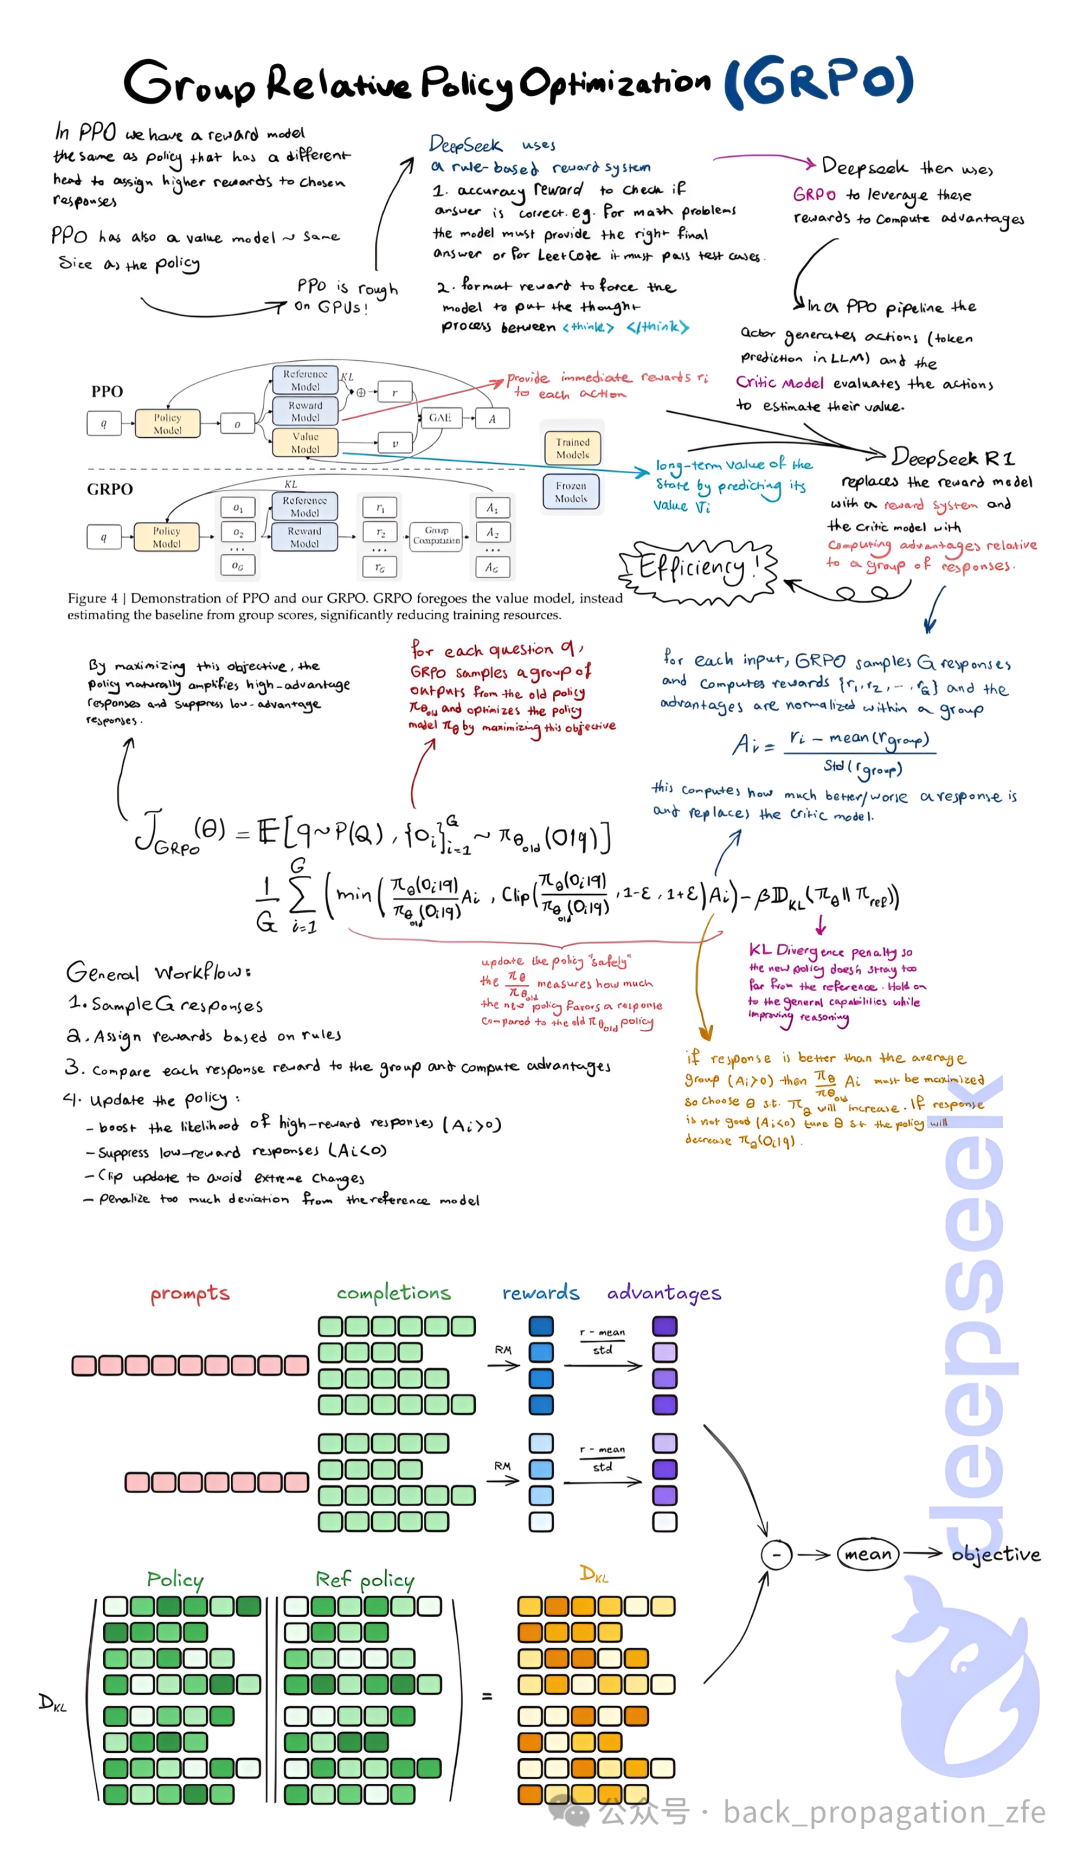 Group Relative Policy Optimization (GRPO)
In PPO we have a reward model
the same as policy that has a different
head to assign higher rewards to chosen
responses
PPO has also a value model ~ same
size as the policy
PPO is rough
on GPUs!
DeepSeek uses
a rule-based reward system
1. accuracy reward to check if
answer is correct. eg. for math problems
the model must provide the right final
answer or for LeetCode it must pass test cases.
2. format reward to force the
model to put the thought
process between <think> </think>
Deepseek then uses
GRPO to leverage these
rewards to compute advantages
In a PPO pipeline the
actor generates actions (token
prediction in LLM) and the
Critic Model evaluates the actions
to estimate their value.
provide immediate rewards ri
to each action
long-term value of the
state by predicting its
value Vi
DeepSeek R1
replaces the reward model
with a reward system and
the critic model with
computing advantages relative
to a group of responses.
Efficiency!
PPO
q
Policy
Model
o
Reference
Model
Reward
Model
Value
Model
KL
⊕
r
v
GAE
A
Trained
Models
Frozen
Models
GRPO
q
Policy
Model
o1
o2
...
oG
KL
Reference
Model
Reward
Model
r1
r2
...
rG
Group
Computation
A1
A2
...
AG
Figure 4 | Demonstration of PPO and our GRPO. GRPO foregoes the value model, instead
estimating the baseline from group scores, significantly reducing training resources.
By maximizing this objective, the
policy naturally amplifies high-advantage
responses and suppress low-advantage
responses.
for each question q,
GRPO samples a group of
outputs from the old policy
πθold and optimizes the policy
model πθ by maximizing this objective
for each input, GRPO samples G responses
and computes rewards {r1, r2, ..., rG} and the
advantages are normalized within a group
Ai = ri - mean(rgroup) / std(rgroup)
this computes how much better/worse a response is
and replaces the critic model.
JGRPO(θ) = E[q~P(Q), {oi}i=1^G ~ πθold(O|q)]
1/G Σi=1^G (min(πθ(oi|q)/πθold(oi|q) Ai, Clip(πθ(oi|q)/πθold(oi|q), 1-ε, 1+ε)Ai) - βDKL(πθ||πref))
update the policy "safely"
the πθ/πθold measures how much
the new policy favors a response
compared to the old πθold policy
KL Divergence penalty so
the new policy doesn't stray too
far from the reference. Hold on
to the general capabilities while
improving reasoning
if response is better than the average
group (Ai>0) then πθ/πθold Ai must be maximized
so choose θ s.t. πθ will increase. If response
is not good (Ai<0) tune θ st the policy will
decrease πθ(oi|q).
General Workflow:
1. Sample G responses
2. Assign rewards based on rules
3. Compare each response reward to the group and compute advantages
4. Update the policy:
- boost the likelihood of high-reward responses (Ai>0)
- Suppress low-reward responses (Ai<0)
- Clip update to avoid extreme changes
- Penalize too much deviation from the reference model
prompts
completions
rewards
advantages
RM
r - mean
std
RM
r - mean
std
-
mean
objective
Policy
Ref policy
DKL
DKL
=
deepseek
公众号 · back_propagation_zfe